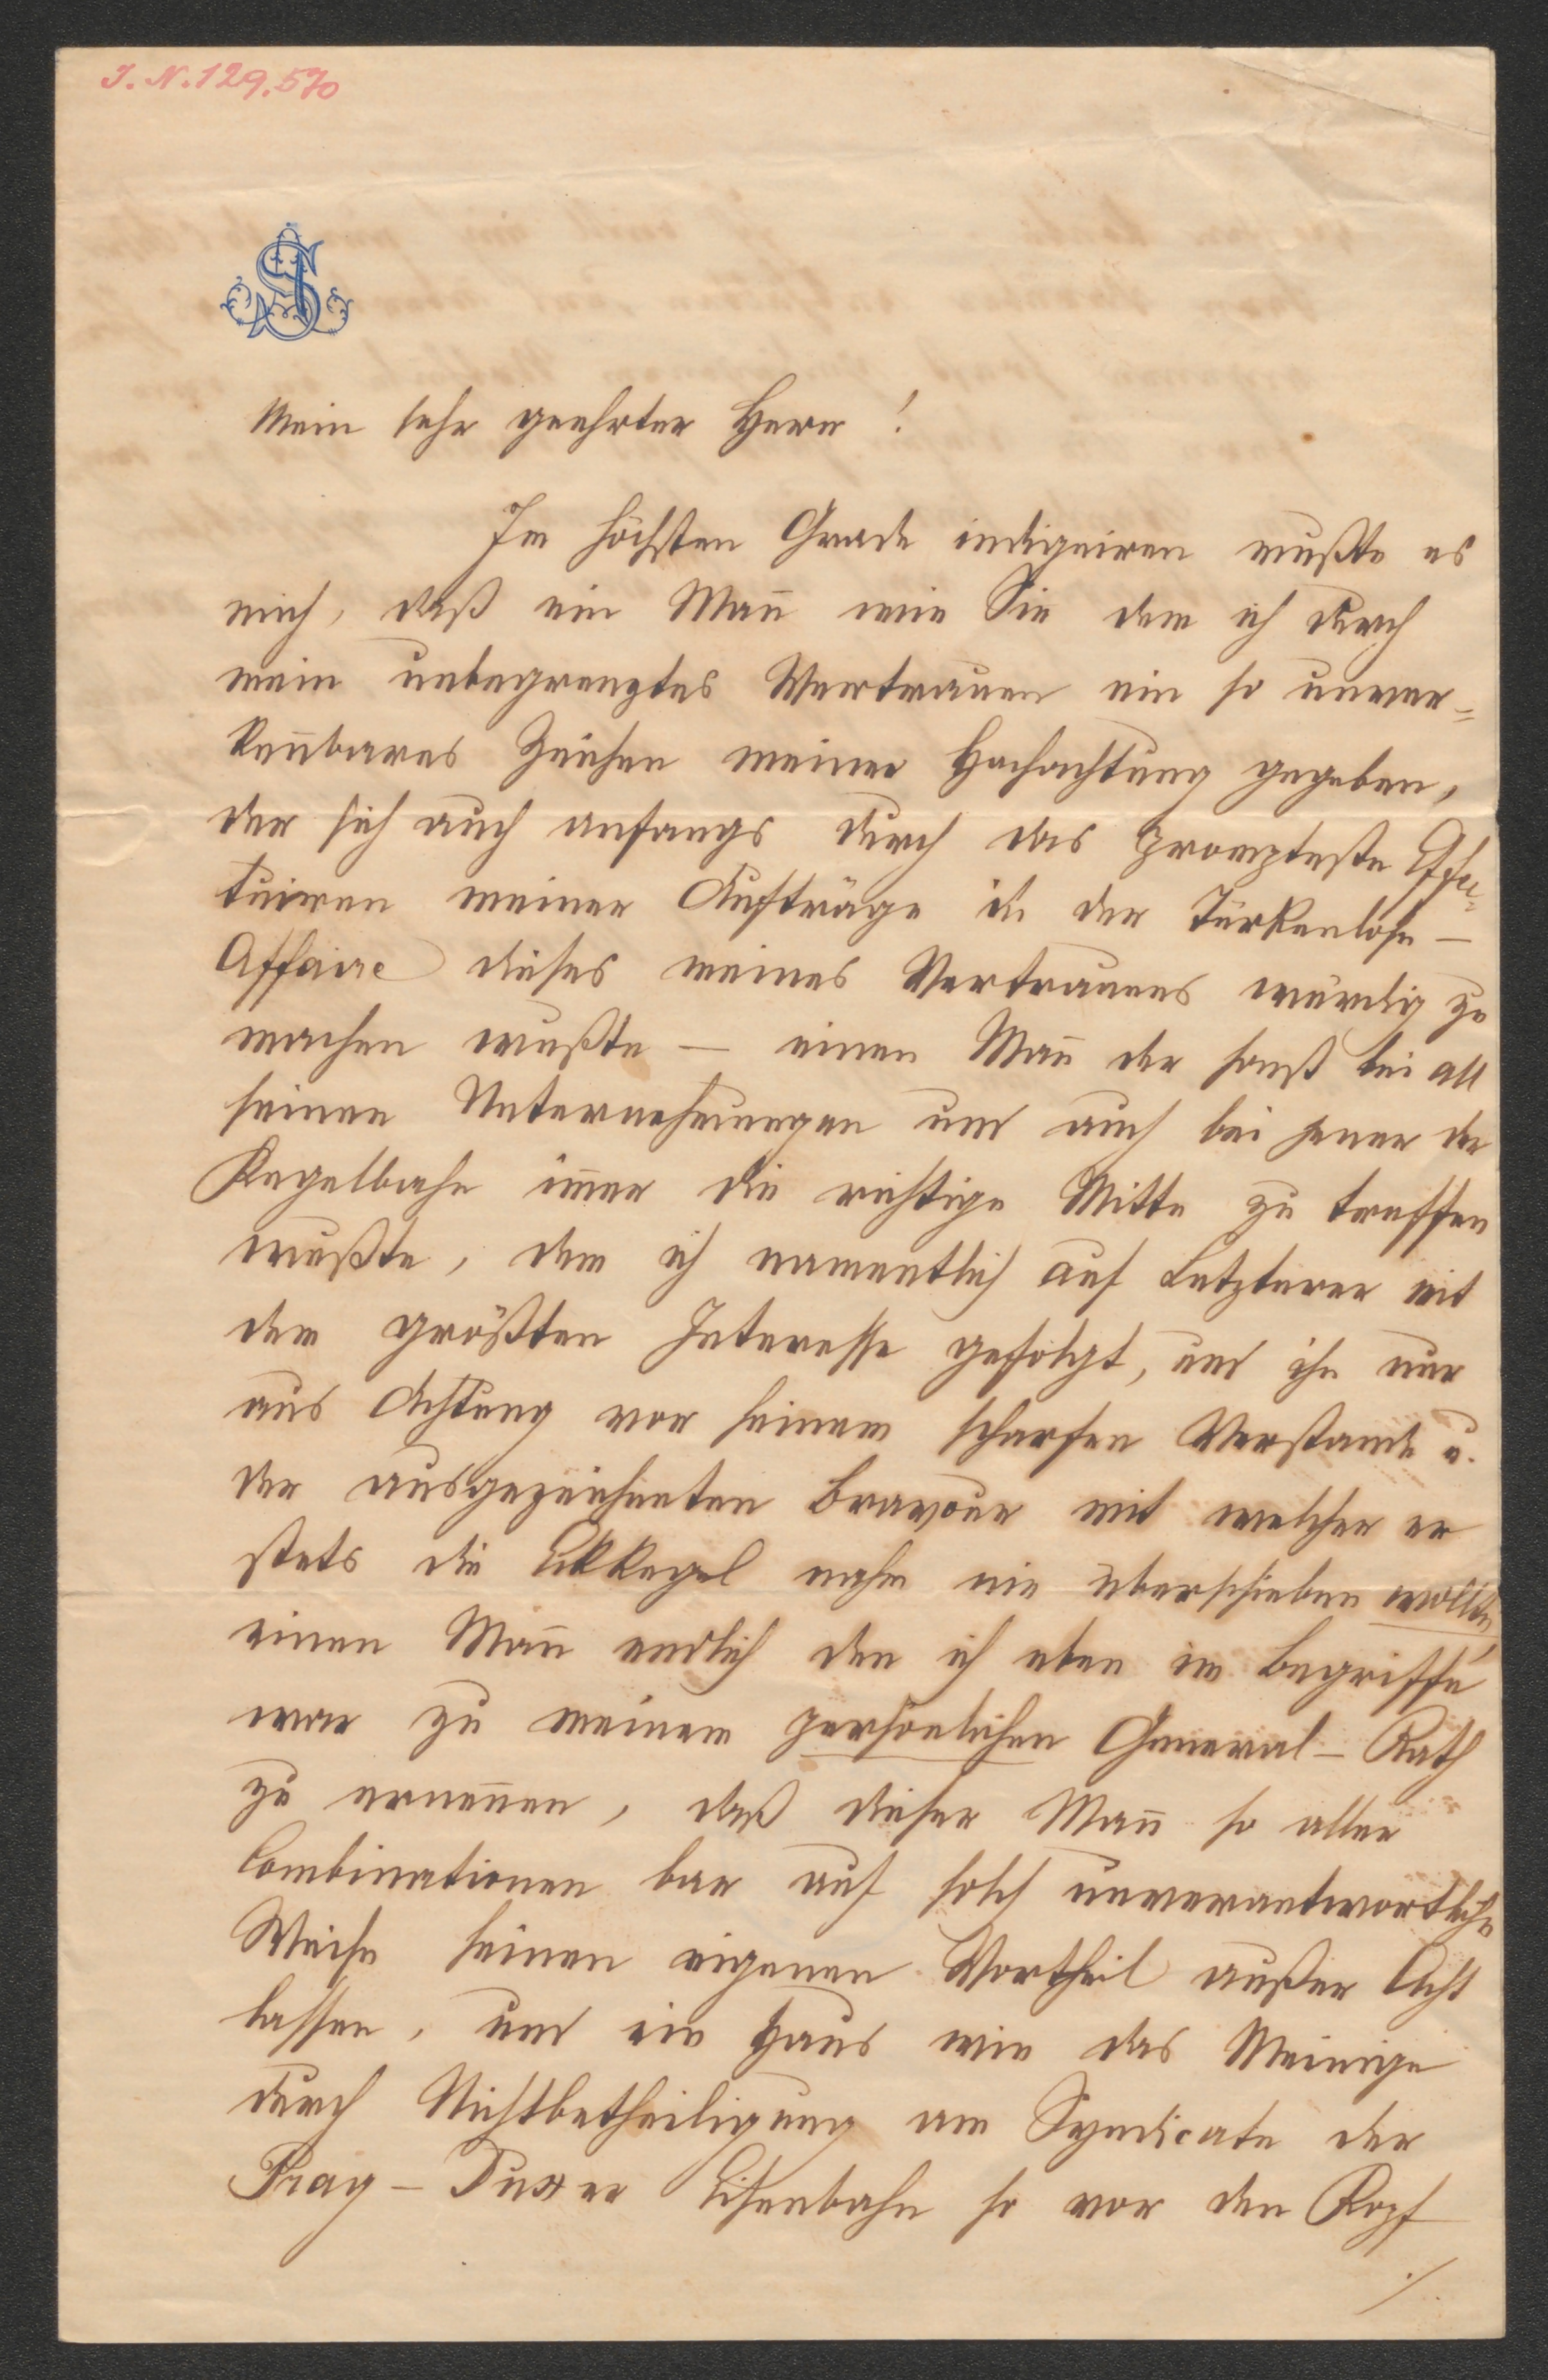 J. N. 129.570
JS
Mein sehr geehrter Herr !
Im höchsten Grade indigniren mußte es
mich, daß ein Mañ wie Sie dem ich durch
mein unbegrenztes Vertrauen ein so unver=
keñbares Zeichen meiner Hochachtung gegeben,
der sich auch anfangs durch das prompteste Effec=
tuiren meiner Aufträge in der Türkenlose –
Affaire dieses meines Vertrauens würdig zu
machen wußte – einen Mañ der sonst bei all
seinen Unternehmungen und auch bei jener der
Kegelbahn im̃er die richtige Mitte zu treffen
wußte, dem ich namentlich auf Letzterer mit
dem größten Interesse gefolgt, und ihn nur
aus Achtung vor seinem scharfen Verstande u.
der ausgezeichneten Bravour mit welcher er
stets die Eckkegel nahm nie überschieben wollte,
einen Mañ endlich den ich eben im Begriffe
war zu meinem persönlichen General – Rath
zu erneñen, daß dieser Mañ so aller
Combinationen bar auf solch unverantwortliche
Weise seinen eigenen Vortheil außer Acht
lassen, und ein Haus wie das Meinige
durch Nichtbetheiligung am Syndicate der
Prag – Duxer Eisenbahn so vor den Kopf
./.